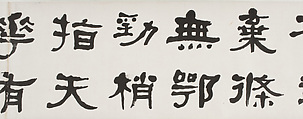 棄條
無鄂
勁梢
指天
華有